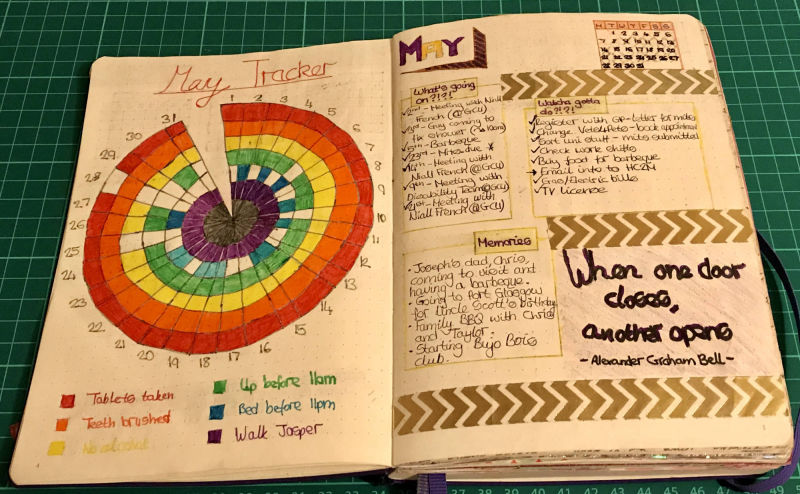 May Tracker
1 2 3 4 5 6 7 8 9 10 11 12 13 14 15 16 17 18 19 20 21 22 23 24 25 26 27 28 29 30 31
Tablets taken
Teeth brushed
No alcohol
Up before 11am
Bed before 11pm
Walk Jasper
MAY
M T W T F S S
1 2 3 4 5 6
7 8 9 10 11 12 13
14 15 16 17 18 19 20
21 22 23 24 25 26 27
28 29 30 31
What's going
on?!?!
Meeting with Niall
French (@GCU)
Guy coming to
fix shower
Mits due
Meeting with
Niall French @GCU
Meeting with
Disability Team@GCU
Meeting with
Niall French @GCU
Watcha gotta
do?!?!
Register with GP - letter for mits
Change Vets4Pets - book appointment
Sort uni stuff - mits submitted
Check work shifts
Buy food for barbeque
Email info to
Gas/Electric bills
TV License
Memories
• Joseph's dad, Chris,
coming to visit and
having a barbeque.
• Going to Port Glasgow
for Uncle Scott's birthday
• Family BBQ with Chris
and Taylor.
• Starting Bujo Bois
club.
When one door
closes,
another opens
- Alexander Graham Bell -